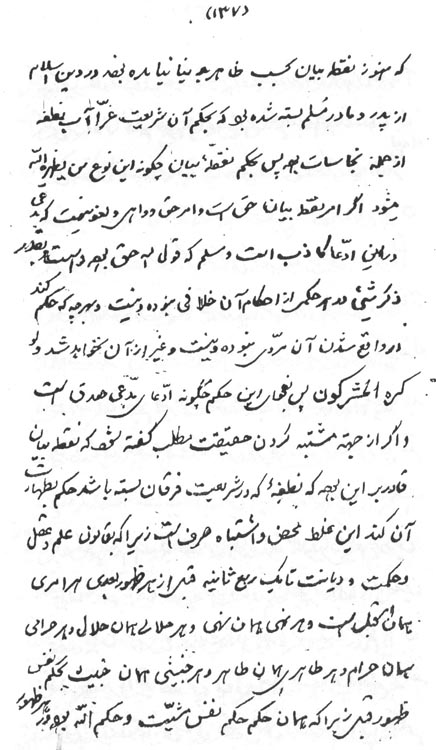 (۱۳۷)
که هنوز نقطه بیان بحسب ظاهر بدنیا نیامده بود در دین اسلام
از پدر و مادر مسلم بسته شده بود که بحکم آن شریعت غرّا آب نطفه
از جمله نجاسات بود پس بحکم نقطهٔ بیان چگونه این نوع من یظهره الله
میشود اگر امر نقطه بیان حق است و امر حق و واهی و لغو نیست که مدّعی
در این ادّعا کاذب است و مسلم که قول او حق بوده و است
ذکر شیئ و در هر حکمی از احکام آن خلافی نبوده و نیست و بهرچه که حکم کند
در واقع شدن آن مردّی نبوده و نیست و غیر از آن نخواهد شد ولو
کره المشرکون پس بفحوای این حکم چگونه ادّعای مدّعی صدق است
و اگر از جهة مشتبه کردن حقیقت مطلب گفته شود که نقطه بیان
قادر بر این بود که نطفهٔ که در شریعت فرقان بسته باشد حکم بطهارت
آن کند این غلط محض و اشتباه صرف است زیرا که بقانون علم و عقل
و حکمت و دیانت تا یک ربع ثانیه قبل از هر ظهور بعدی هر امری
همان امر قبل است و هر نهی همان نهی و هر حلالی همان حلال و هر حرامی
همان حرام و هر طاهری همان طاهر و هر خبیثی همان خبیث بحکم نفس
ظهور قبل زیرا که همان حکم حکم نفس مشیّت و حکم الله بوده در هر ظهور